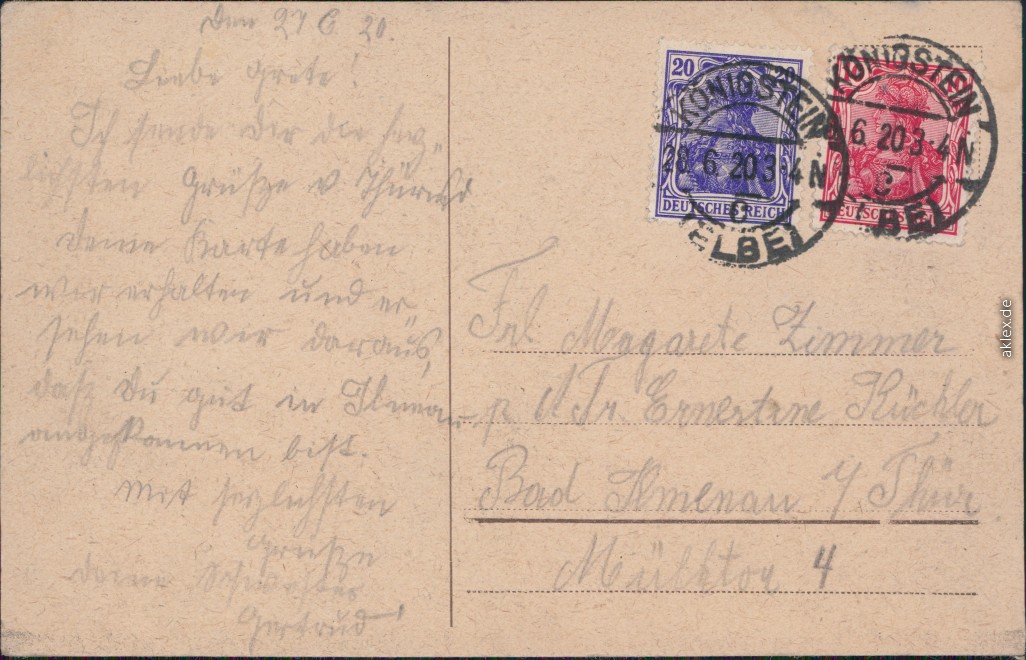 Den 27 6 20.
Liebe Grete!
Ich sende Dir die herz„
lichsten Grüße v
deine Karte haben
wir erhalten und er„
sehen wir daraus,
daß Du gut in Ilmenau
angekommen bist.
Mit herzlichsten
Grüße
deine Schwester
Gertrud
20 20
DEUTSCHES REICH
KÖNIGSTEIN
28. 6. 20 3-4 N
C
(ELBE)
DEUTSCHES
KÖNIGSTEIN
6. 20 3-4 N
C
ELBE)
Frl. Magarete Zimmer
Fr. Ernestine Küchler
Bad Ilmenau / Thür
Mühltor 4
aklex.de